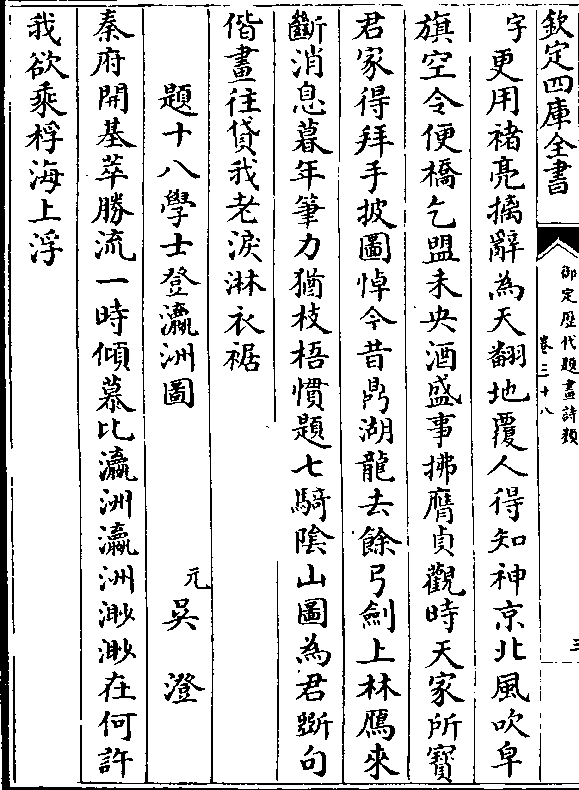 欽定四庫全書
御定歴代題畫詩類
卷三十八
三
字更用褚亮摛辭為天翻地覆人得知神京北風吹皁
旗空令便橋乞盟未央酒盛事拂膺貞觀時天家所寳
君家得拜手披圖悼今昔鼎湖龍去餘弓劍上林鴈來
斷消息暮年筆力猶枝梧慣題七騎陰山圖為君斷句
偕畫往貸我老淚淋衣裾
題十八學士登瀛洲圖
元吳澄
秦府開基萃勝流一時傾慕比瀛洲瀛洲渺渺在何許
我欲乘桴海上浮